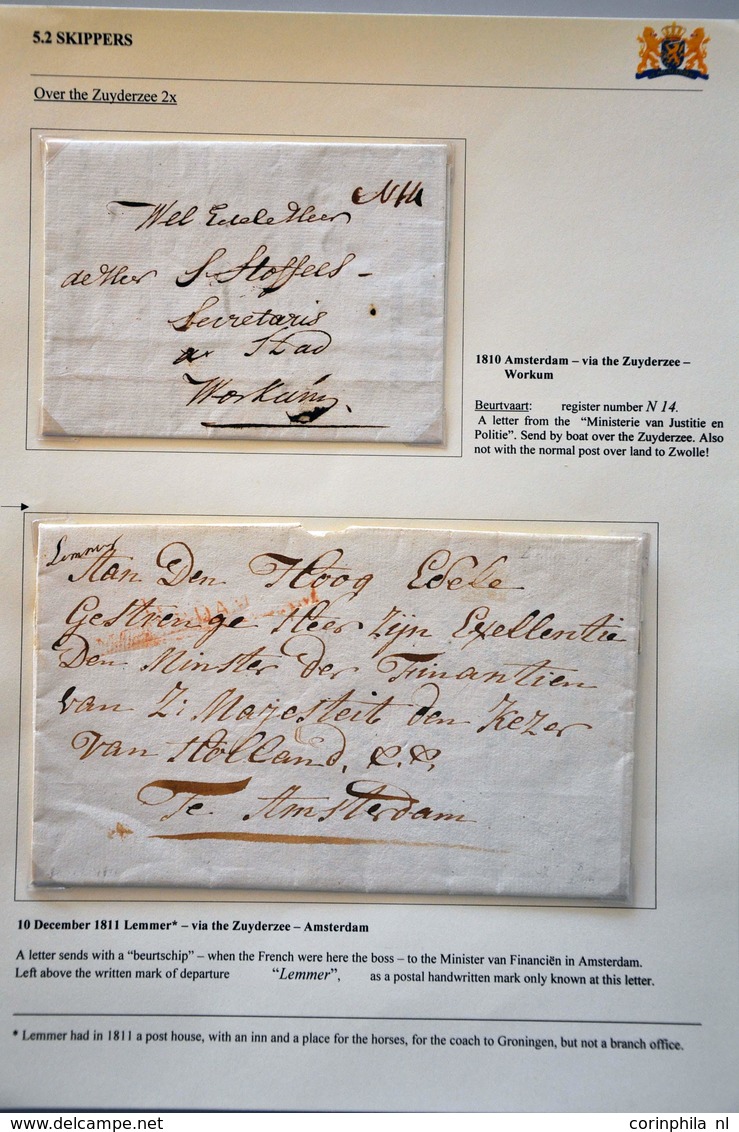 5.2 SKIPPERS
Over the Zuyderzee 2x
N 14
Wel Edele Heer
de Heer S. Stoffels -
Secretaris
Stad
Workum.
1810 Amsterdam – via the Zuyderzee –
Workum
Beurtvaart: register number N 14.
A letter from the “Ministerie van Justitie en
Politie”. Send by boat over the Zuyderzee. Also
not with the normal post over land to Zwolle!
Lemmer
Aan Den Hoog Edele
Gestrenge Heer Zijn Exellentie
Den Minster der Finantien
van Z: Majesteit den Kezer
Van Holland, &.&.
Te Amsterdam
10 December 1811 Lemmer* – via the Zuyderzee – Amsterdam
A letter sends with a “beurtschip” – when the French were here the boss – to the Minister van Financiën in Amsterdam.
Left above the written mark of departure “Lemmer”, as a postal handwritten mark only known at this letter.
* Lemmer had in 1811 a post house, with an inn and a place for the horses, for the coach to Groningen, but not a branch office.
corinphila nl